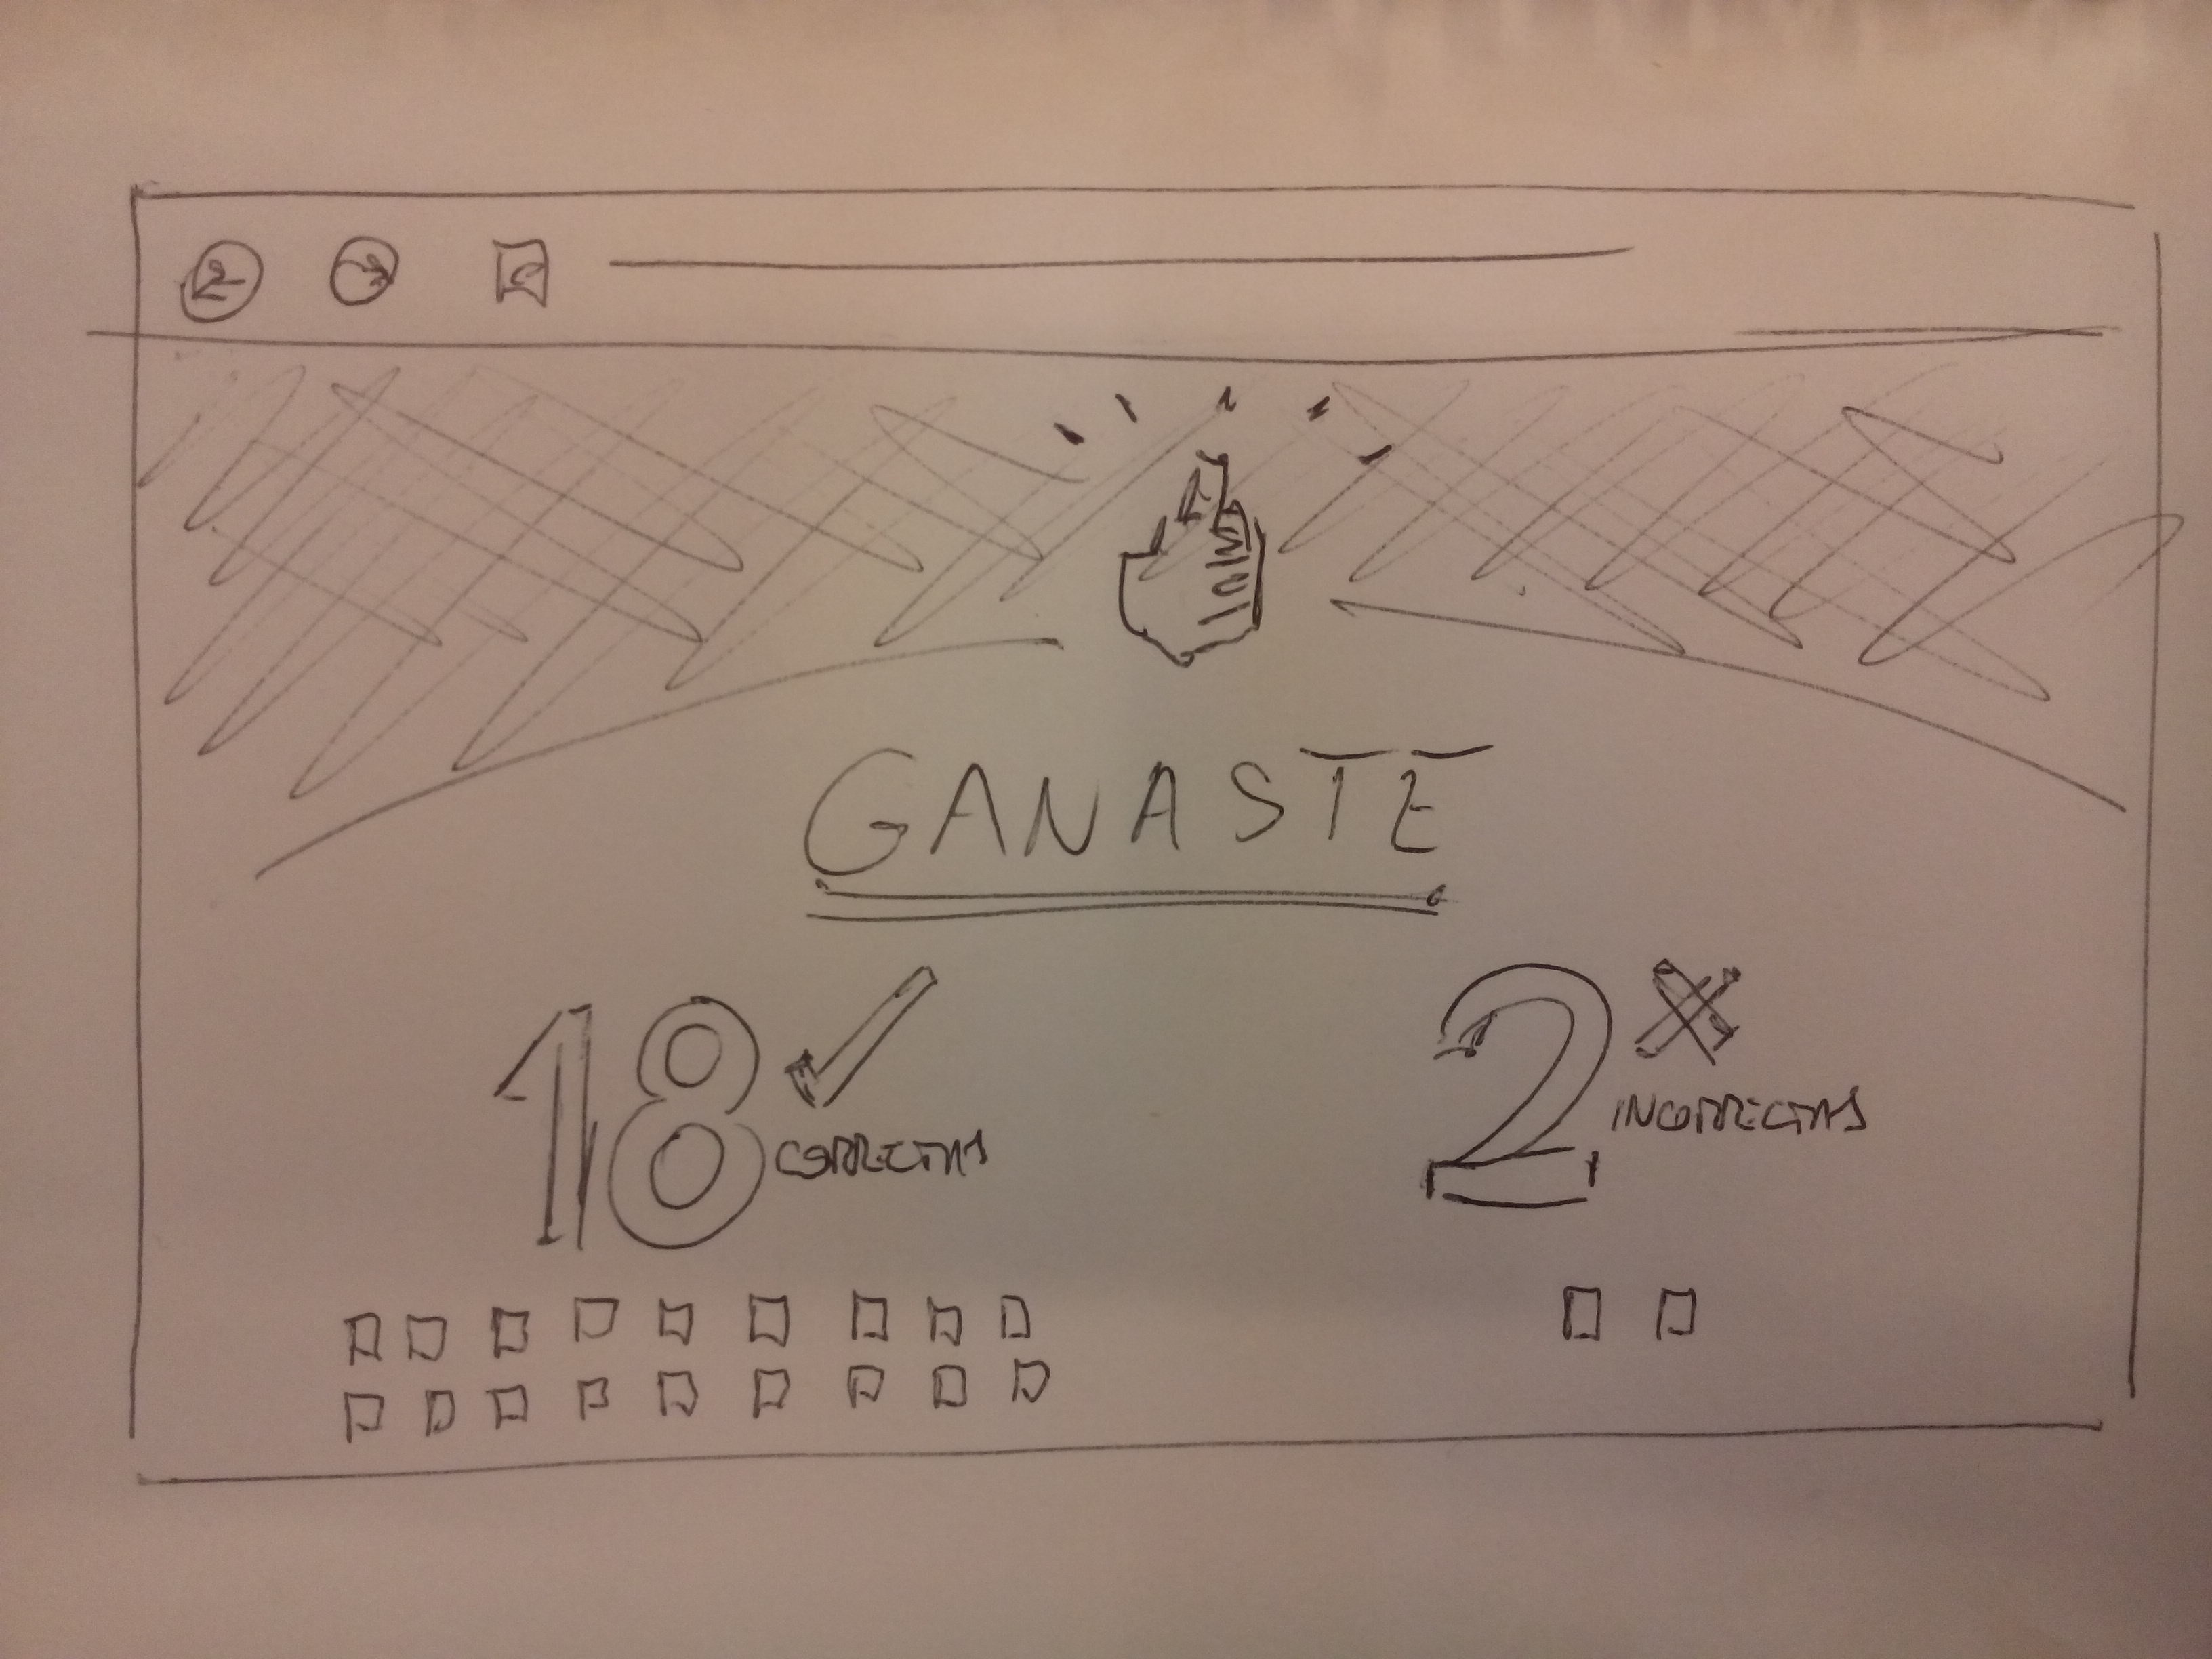 GANASTE
18 CORRECTAS
2 INCORRECTAS